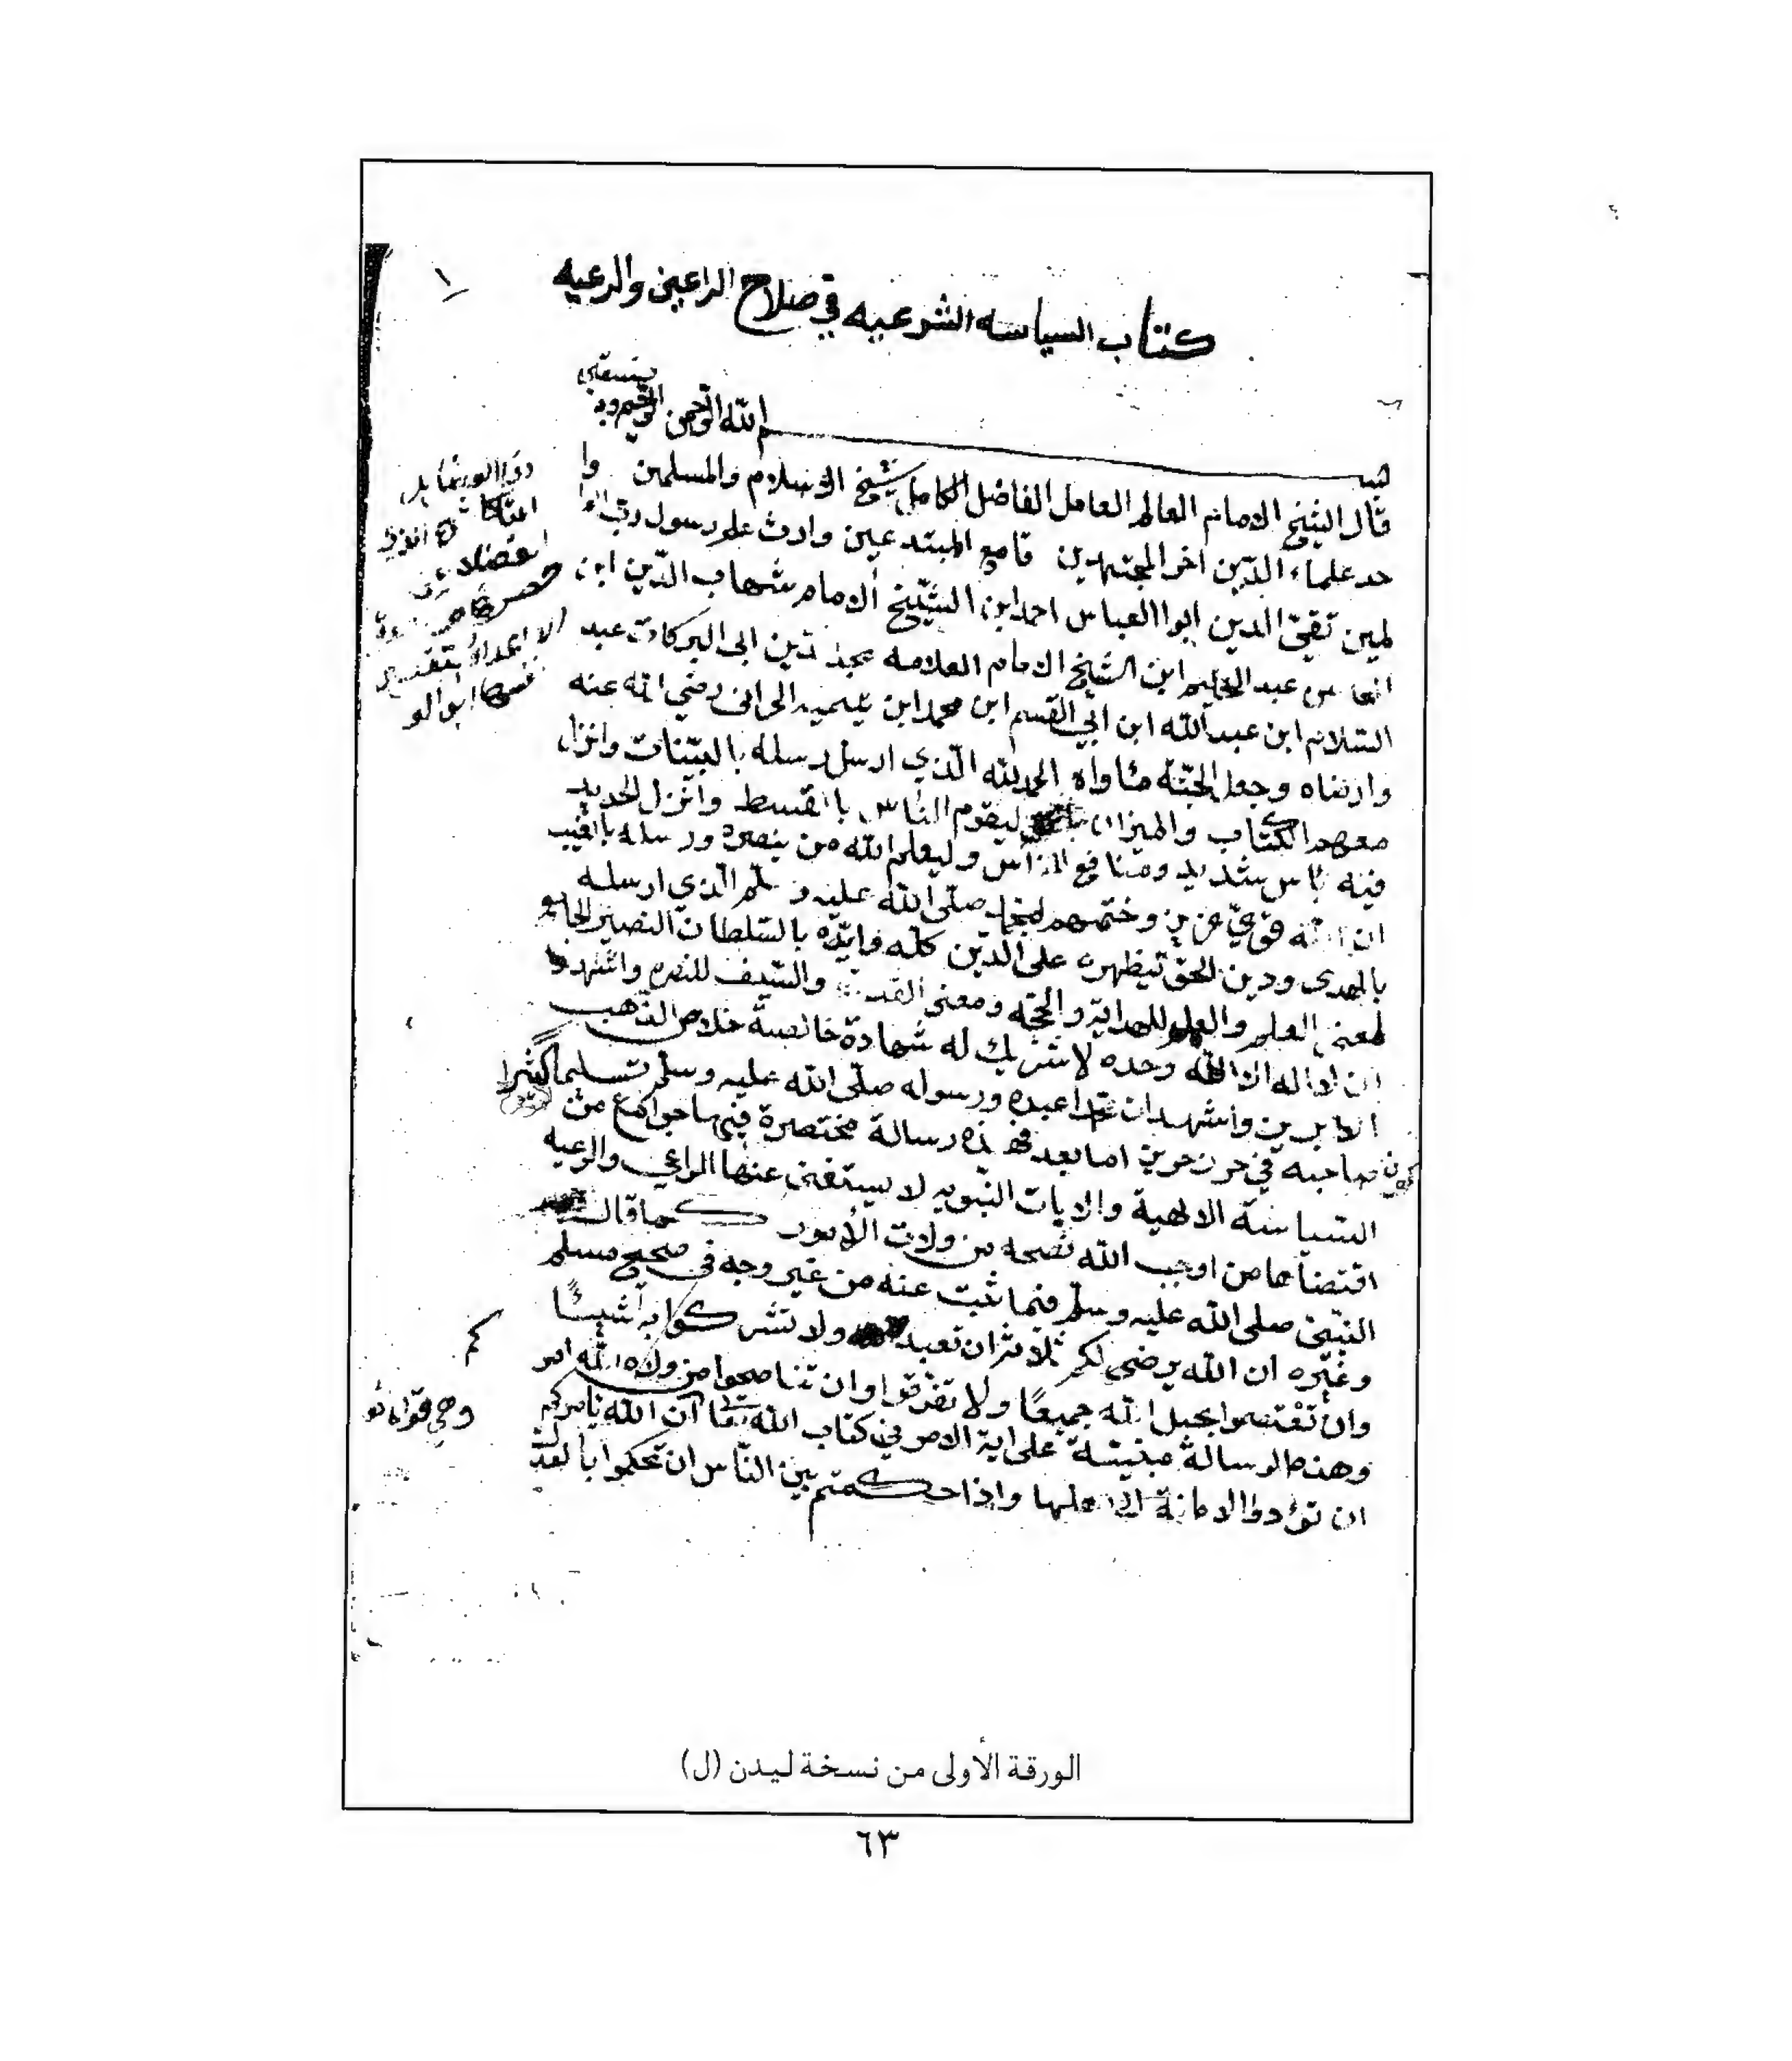 ١
كتاب السياسه الشرعيه في صلاح الراعي والرعيه
بسم الله الرحمن الرحيم وبه نستعين
قال الشيخ الامام العالم العامل الفاضل الكامل شيخ الاسلام والمسلمين وا
حد علماء الدّين اخر المجتهدين قامع المبتدعين وارث علم رسول ربّ العا
لمين تقيّ الدين ابوا العباس احمد ابن الشّيخ الامام شهاب الدّين ابن
عبد الحليم ابن الشيخ الامام العلامه مجد الدين ابى البركات عبد
السّلام ابن عبد الله ابن ابي القسم ابن محمد ابن تيميه الحرانى رضي الله عنه
وارضاه وجعل الجنّة مئاواه الحمد لله الّذي ارسل رسله بالبيّنات وانزل
معهم الكتاب والميزان ليقوم النّاس بالقسط وانزل الحديد
فيه باس شديد ومنافع للناس وليعلم الله من ينصره ورسله بالغيب
ان الله قويّ عزيز وختمهم بمحمد صلّى الله عليه وسلّم الّذي ارسله
بالهدى ودين الحق ليظهره على الدّين كلّه وايّده بالسّلطان النصير الجامع
لمعنى العلم والعلم للهداية والحجّه ومعنى القدرة والسّيف للنصره واشهد
ان لا اله الا الله وحده لا شريك له شهادة خالصة خلاص الذّهب
الابريز واشهد ان محمدا عبده ورسوله صلّى الله عليه وسلّم تسليما كثيرا
يكون صاحبه في حرز حريز اما بعد فهذه رسالة مختصرة فيها جوامع من
السّياسة الالهية والايات النّبويه لا يستغنى عنها الراعي والرعيه
اقتضاها من اوجب الله نصحه من ولات الأمور كما قال
النّبيّ صلى الله عليه وسلّم فيما ثبت عنه من غير وجه فى صحيح مسلم
وغيره ان الله يرضى لكم ثلاثا ان تعبدوه ولا تشركوا به شيئًا
وان تعتصموا بحبل الله جميعًا ولا تفرقوا وان تناصحوا من ولاه الله امر
كم
وهذه الرسالة مبنيّة على اية الامر في كتاب الله وهي قوله تعالى ان الله يامركم
ان تؤدوا الامانة الى اهلها واذا حكمتم بين النّاس ان تحكموا بالعدل
الورقة الأولى من نسخة ليدن (ل)
٦٣